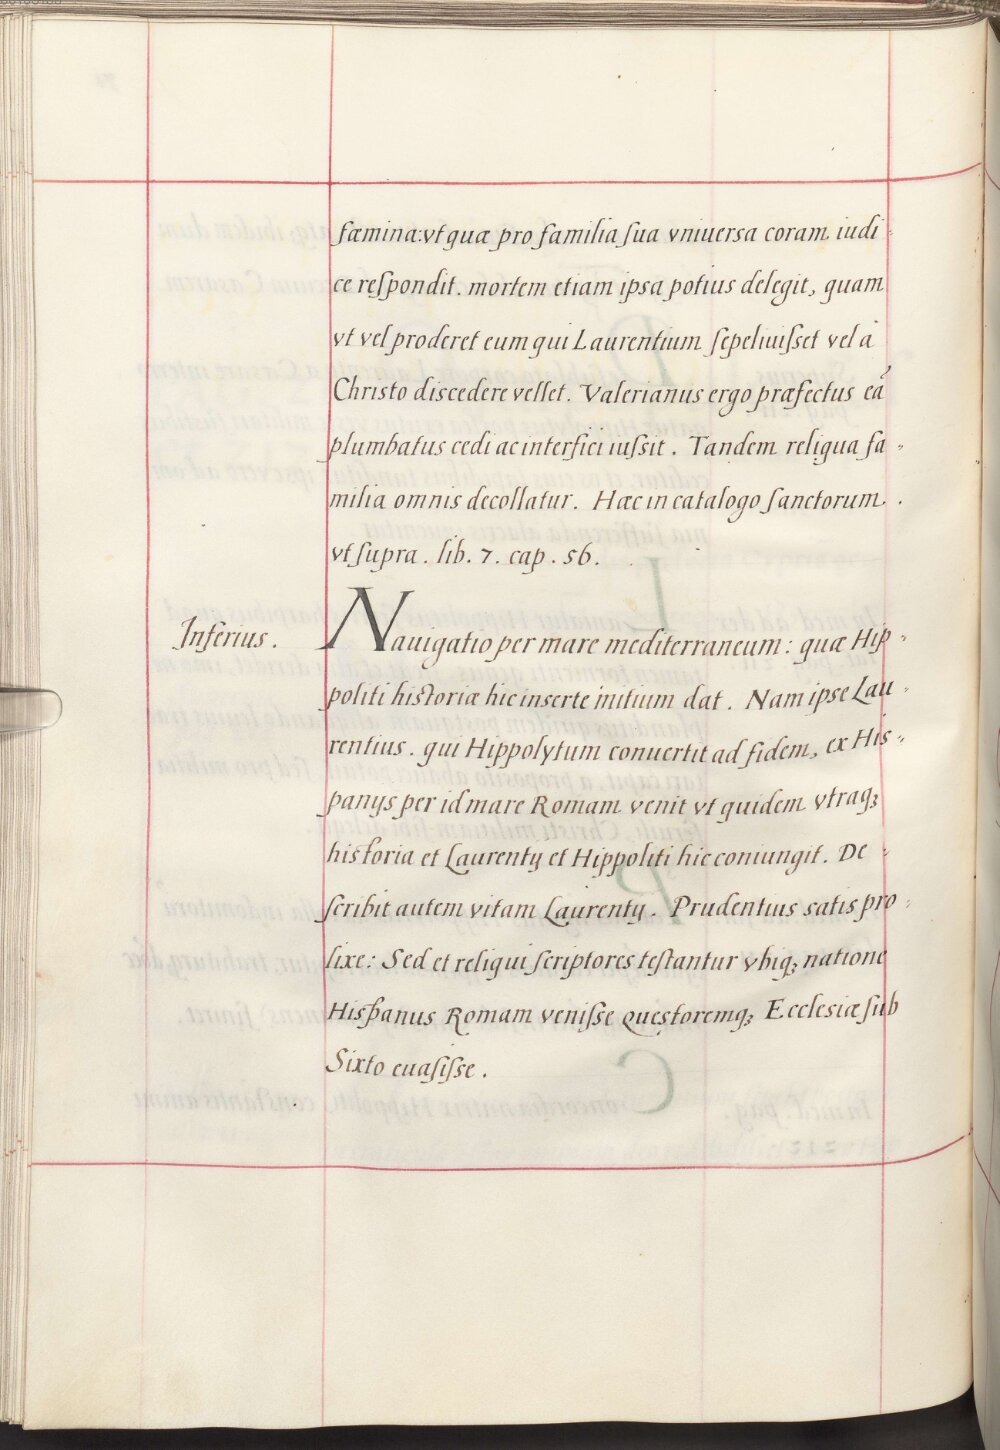 fæmina: vt quæ pro familia sua vniuersa coram iudi
ce respondit. mortem etiam ipsa potius delegit, quam
vt vel proderet eum qui Laurentium sepeliuisset vel à
Christo discedere vellet. Valerianus ergo præfectus eã
plumbatus cedi ac interfici iussit. Tandem reliqua fa-
milia omnis decollatur. Hæc in catalogo sanctorum.
vt supra. lib. 7. cap. 56.
Inferius.
Nauigatio per mare mediterraneum: quæ Hip-
politi historiæ hic inserte initium dat. Nam ipse Lau-
rentius. qui Hippolytum conuertit ad fidem, ex His-
panijs per id mare Romam venit vt quidem vtraq;
historia et Laurentij et Hippoliti hic coniungit. De-
scribit autem vitam Laurentij. Prudentius satis pro-
lixe: Sed et reliqui scriptores testantur vbiq; natione
Hispanus Romam venisse questoremq; Ecclesiæ sub
Sixto euasisse.